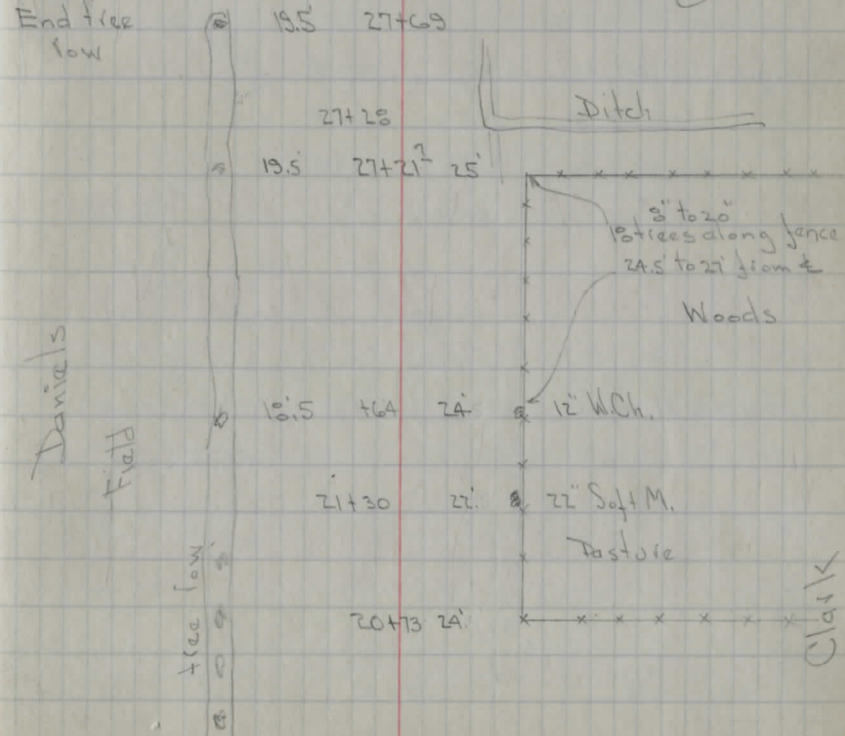 End tree 19.5' 27+69
row
27+28
Ditch
19.5 27+21² 25'
8" to 20"
18 trees along fence
24.5' to 27' from ℄
Woods
Daniels
Field
18.5 +64 24' 12" W.Ch.
21+30 22' 22" Soft M.
Pasture
tree row
20+73 24'
Clark